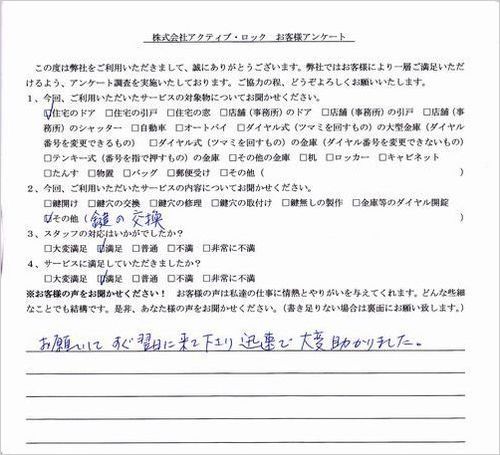 株式会社アクティブ・ロック　お客様アンケート
この度は弊社をご利用いただきまして、誠にありがとうございます。弊社ではお客様により一層ご満足いただ
けるよう、アンケート調査を実施いたしております。ご協力の程、どうぞよろしくお願いいたします。
1、今回、ご利用いただいたサービスの対象物についてお聞かせください。
☑住宅のドア　□住宅の引戸　□住宅の窓　□店舗（事務所）のドア　□店舗（事務所）の引戸　□店舗（事務
所）のシャッター　□自動車　□オートバイ　□ダイヤル式（ツマミを回すもの）の大型金庫（ダイヤル
番号を変更できるもの）　□ダイヤル式（ツマミを回すもの）の金庫（ダイヤル番号を変更できないもの）
□テンキー式（番号を指で押すもの）の金庫　□その他の金庫　□机　□ロッカー　□キャビネット
□たんす　□物置　□バッグ　□郵便受け　□その他（　　　）
2、今回、ご利用いただいたサービスの内容についてお聞かせください。
□鍵開け　□鍵穴の交換　□鍵穴の修理　□鍵穴の取付け　□鍵無しの製作　□金庫等のダイヤル開錠
☑その他（ 鍵の交換　　　）
3、スタッフの対応はいかがでしたか？
□大変満足　☑満足　□普通　□不満　□非常に不満
4、サービスに満足していただきましたか？
□大変満足　☑満足　□普通　□不満　□非常に不満
※お客様の声をお聞かせください！　お客様の声は私達の仕事に情熱とやりがいを与えてくれます。どんな些細
なことでも結構です。是非、あなた様の声をお聞かせください。（書き足りない場合は裏面にお願い致します。）
お願いして すぐ翌日に来て下さり 迅速で 大変 助かりました。